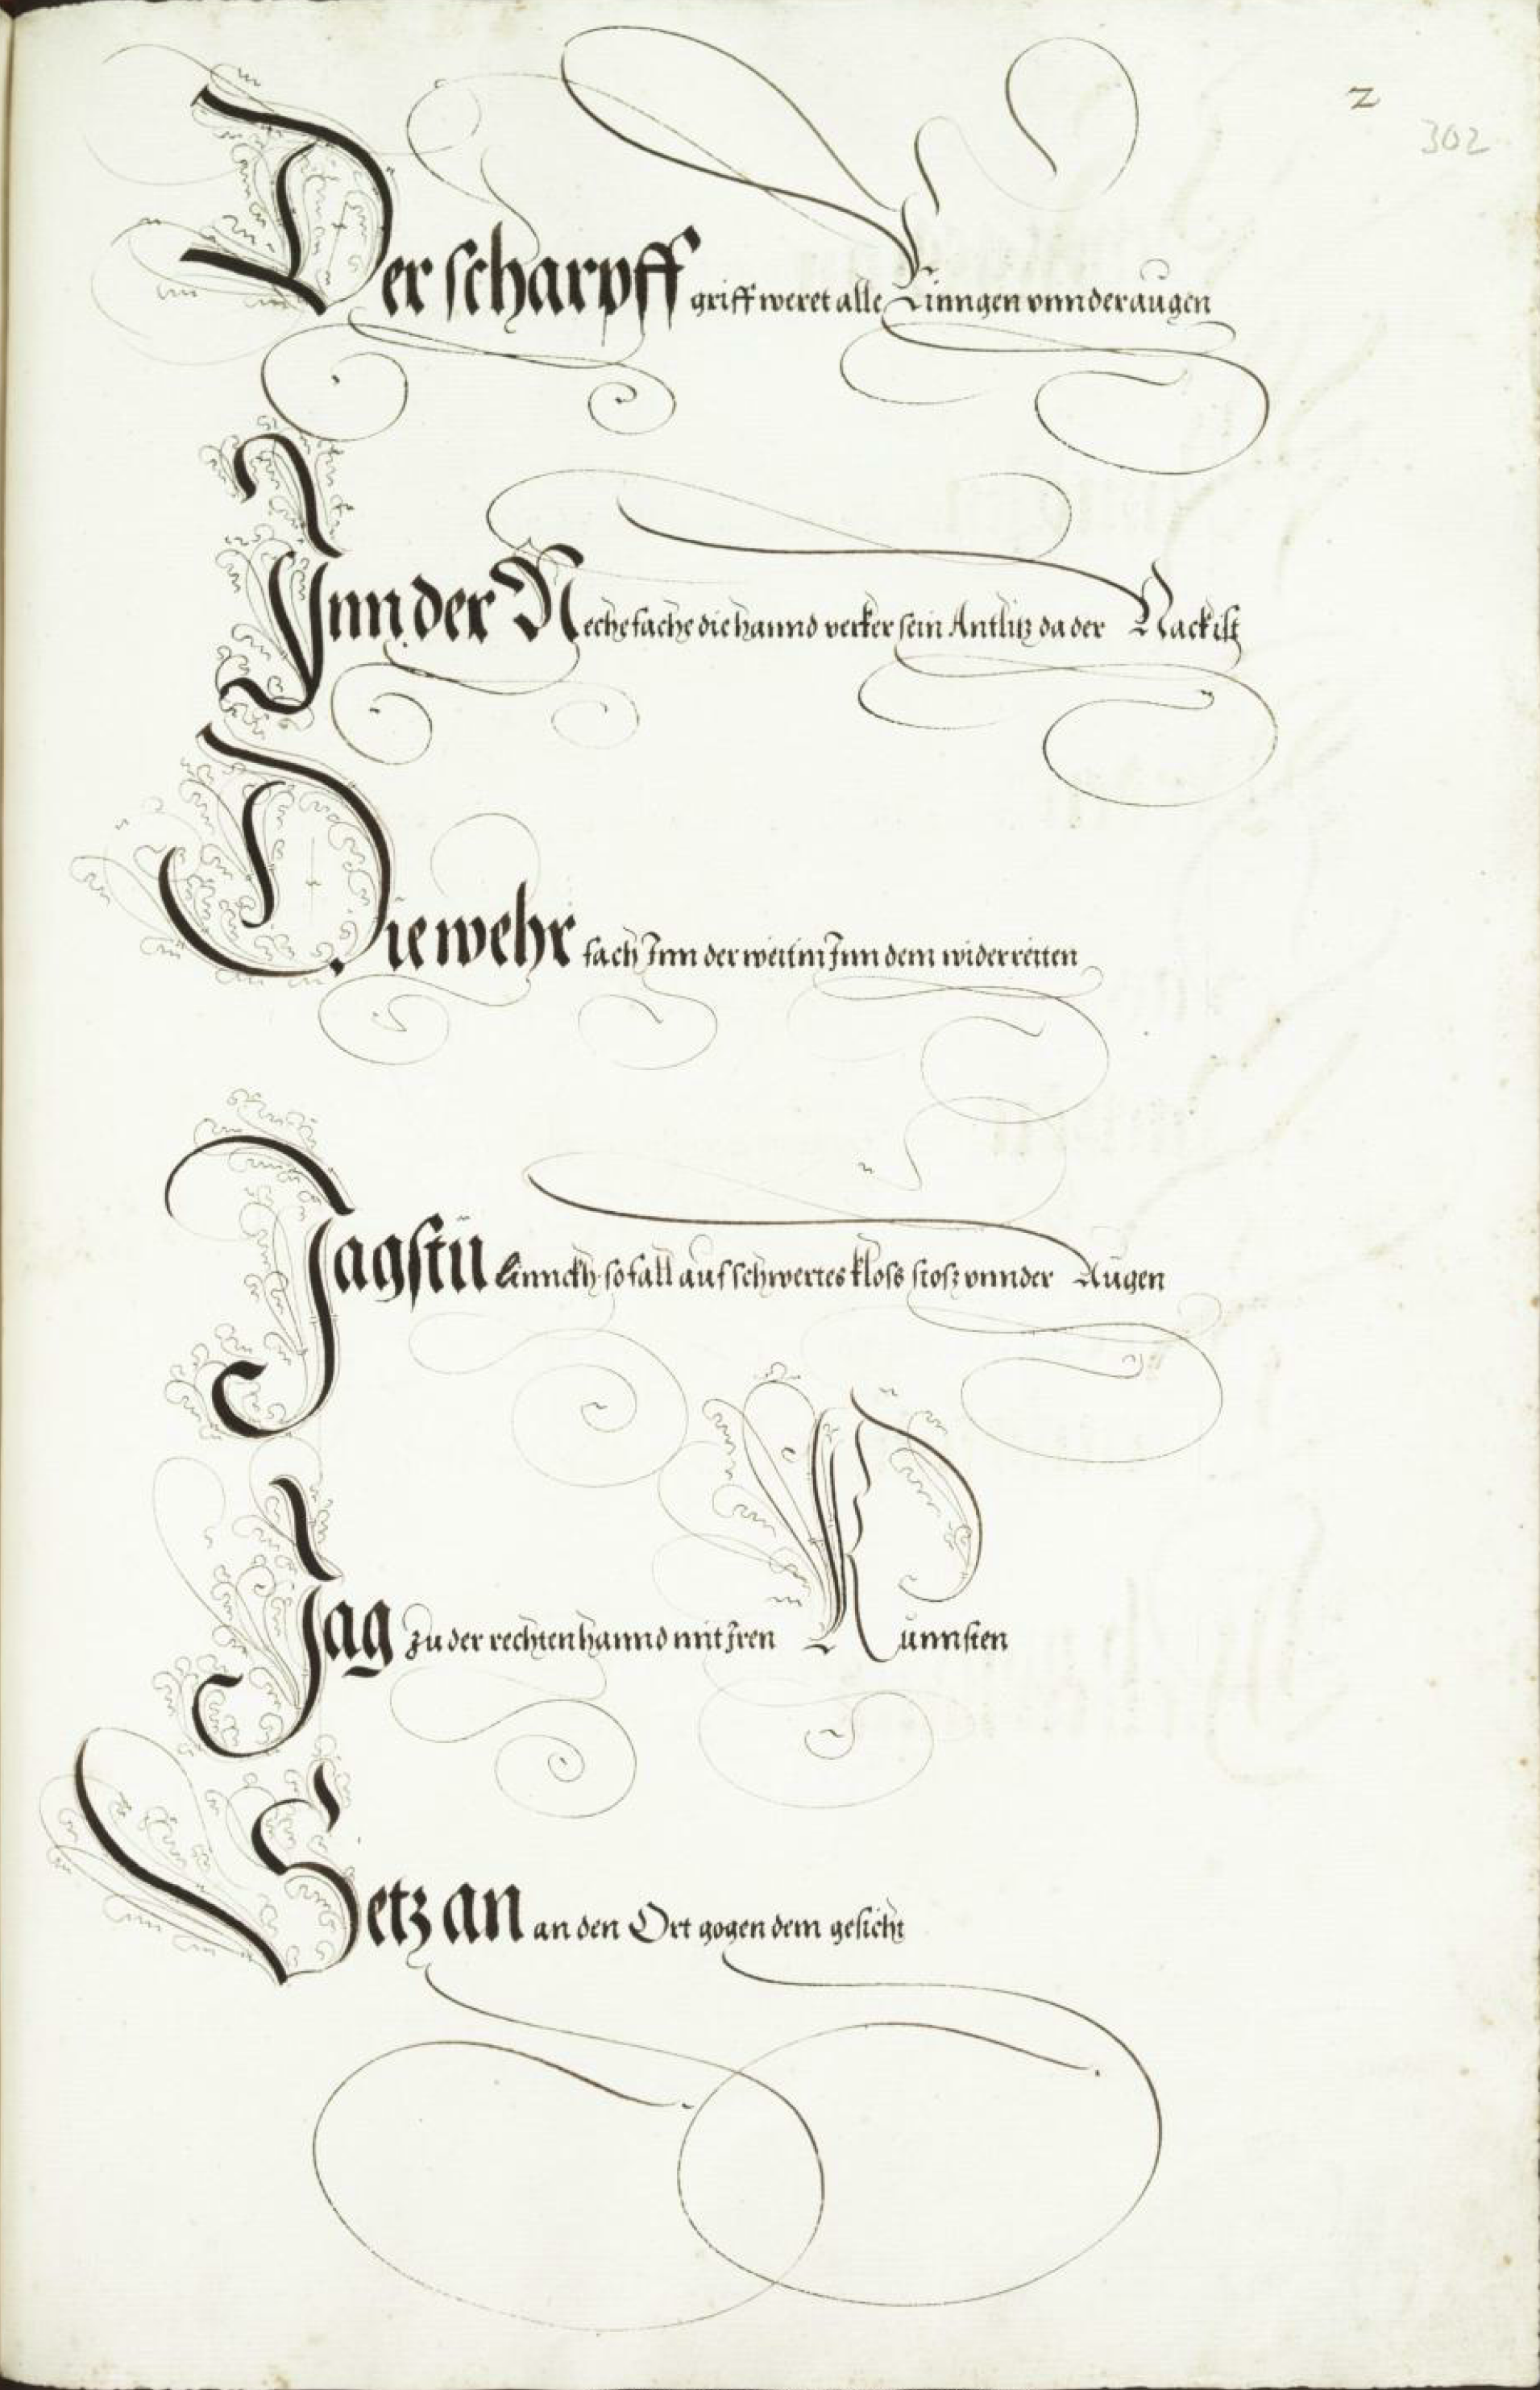 2
302
Der scharpff griff weret alle Rinngen vnnder augen
Inn der Neche fache die hannd verker sein Antlitz da der Nack ist
Die wehr fach Inn der weitin Inn dem widerreitten
Jagstu linnckh so fall auf schwertes kloss stosz vnnder Augen
Jag zu der rechten hannd mit Iren Kunnsten
Setz an an den Ort gogen dem gesicht